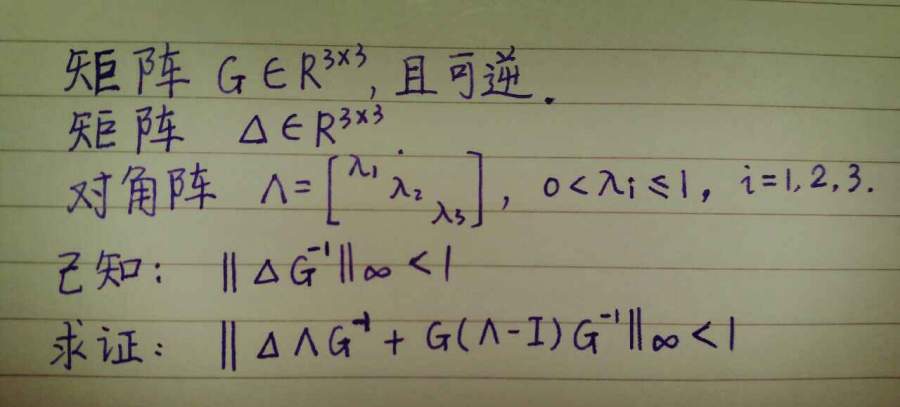 矩阵 G∈R³ˣ³, 且可逆.
矩阵 Δ∈R³ˣ³
对角阵 Λ=[λ₁ λ₂ λ₃], 0<λi≤1, i=1,2,3.
已知: ‖ΔG⁻¹‖∞<1
求证: ‖ΔΛG⁻¹+G(Λ-I)G⁻¹‖∞<1